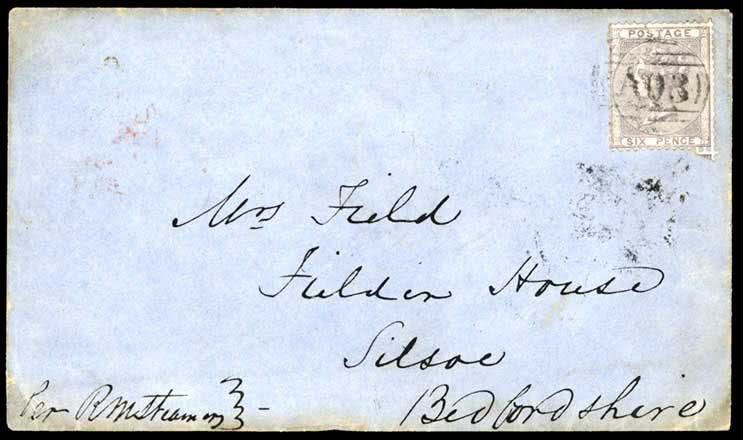 POSTAGE
A03
SIX PENCE
Mrs Field
Fielden House
Silsoe
Bedfordshire
Per RM Steamer